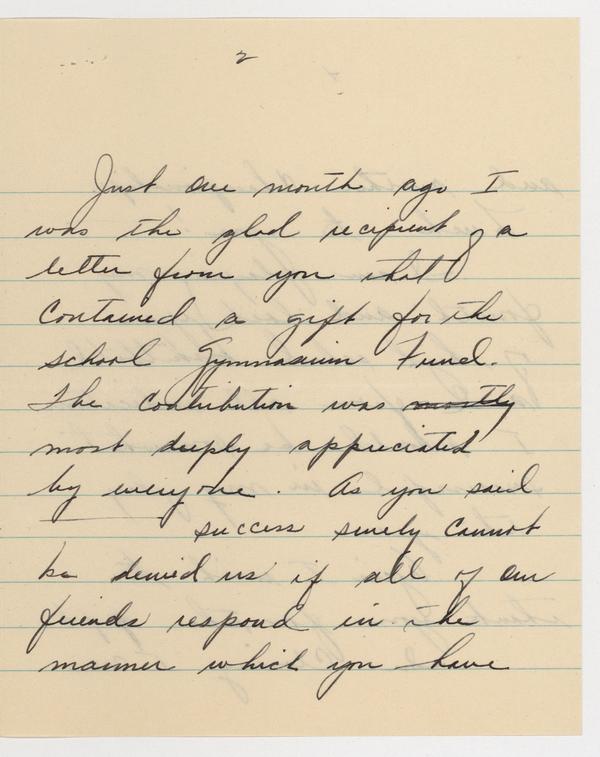 2
Just one month ago I
was the glad recipient of a
letter from you that
contained a gift for the
school Gymnasium Fund.
The contribution was mostly
most deeply appreciated
by everyone. As you said
success surely cannot
be denied us if all of our
friends respond in the
manner which you have